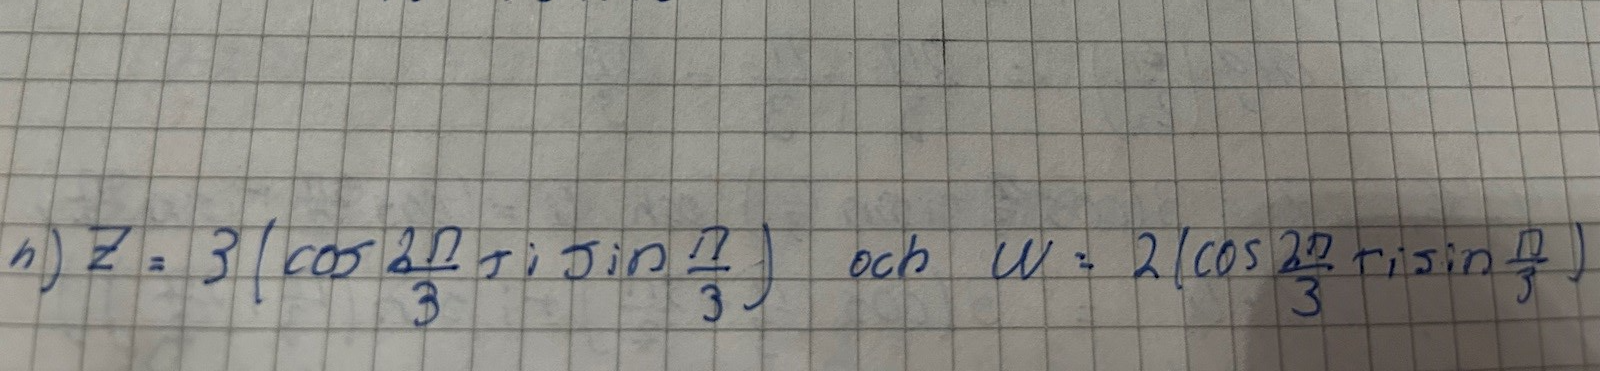 h) z = 3(cos 2π/3 + i sin π/3) och w = 2(cos 2π/3 + i sin π/3)